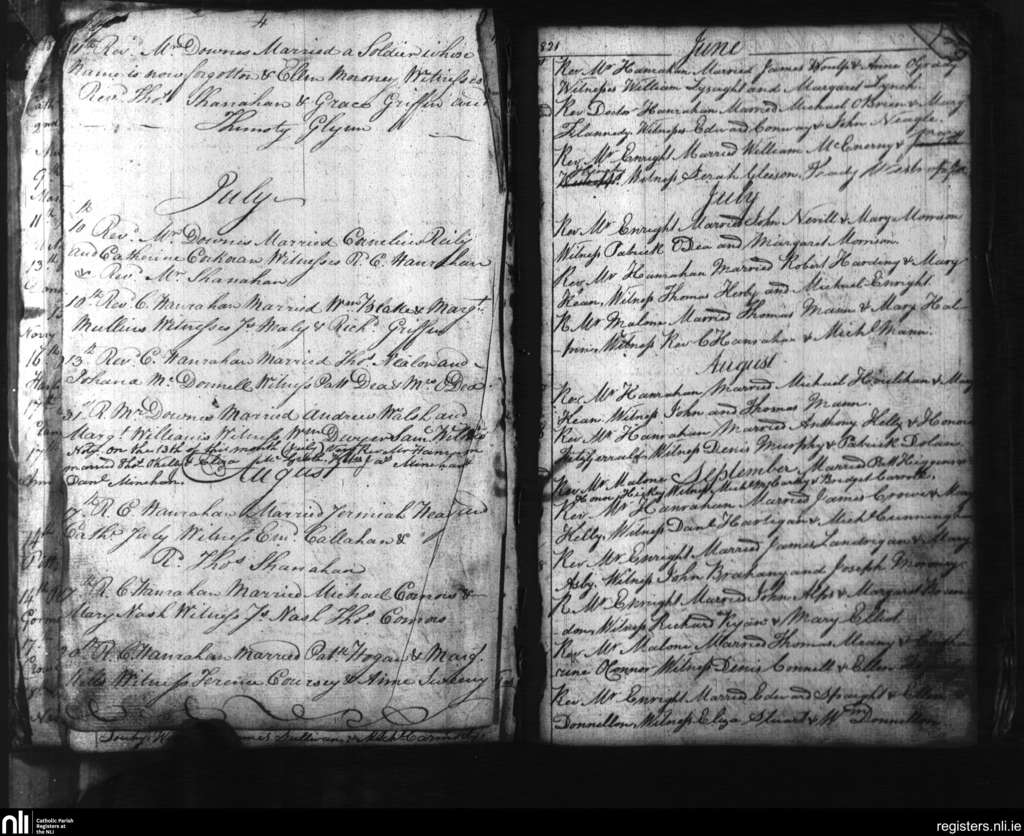 4
11th Rev. Mr Downes Married a Soldier whose
Name is now forgotten & Ellen Mooney Witnesses
Revd. Thos. Shanahan & Grace Griffin and
Thimoty Glynn
July
10th Revd. Mr Downes Married Cornelius Reily
and Catherine Corkoran Witnesses R. C. Hanrahan
& Rev. Mr. Shanahan
10th Rev. C. Hanrahan Married Wm. Blake & Margt.
Mullins Witnesses Js. Maly & Richd. Griffin
13th Rev. C. Hanrahan Married Thos. Nealon and
Johana Mc Donnell Witness Patt Dea & Mrs. O Dea
31st R. Mr Downes Married Andrew Walsh and
Margt. Williams Witness Wm. Dwyer & Saml.
on the 13th of this month Rev. Mr
married Thos. & Eliza Minehan
Danl. Minehan.
August
7th R. C. Hanrahan Married Jermiah and
Cathe. July Witness Emd. Callahan &
Rd. Thos Shanahan
7th R. C. Hanrahan Married Michael Connors &
Mary Nash Witness Js. Nash Thos. Connors
R. C. Hanrahan Married Patk. Hogan & Margt.
Witness Terence Coursey & Anne Sweeny
821
June
Rev. Mr. Hanrahan Married James Woulfe & Anne O'Grady
Witness William Lysaght and Margaret Lynch
Rev. Doctor Hanrahan Married Michael O'Brien & Mary
Flannedy Witness Edward Conway & John Neagle
Rev. Mr Enright Married William McEnerny &
Witness Sarah Gleeson,
July
Rev. Mr Enright Married John Nevill & Mary Morrison
Witness Patrick O'Dea and Margaret Morrison
Rev. Mr Hanrahan Married Robert Harding & Mary
Kean, Witness Thomas and Michael Enright
R. Mr Malone Married Thomas Mann & Mary Hal
-finn Witness Rev. C. Hanrahan & Michl. Mann.
August
Rev. Mr Hanrahan Married Michael Houlihan & Mary
Kean. Witness John and Thomas Mann.
Rev. Mr Hanrahan Married Anthony Kelly & Honora
Witness Denis Murphy & Patrick Dolan
September
Rev. Mr. Malone Married Patt Higgins &
Honor Hickey Witness Michl. McCarthy & Bridget Carroll
Rev. Mr Hanrahan Married James Crowe & Mary
Kelly Witness Danl. Hartigan & Michl. Cunningham
Rev. Mr. Enright Married James Landrigan & Mary
Asby. Witness John Brahany and Joseph Moroney
R. Mr. Enright Married John Alps & Margaret
Witness Richard Ryan & Mary Elliot
Rev. Mr Malone Married Thomas Meany & Cathe
-rine O'Connor Witness Denis Connell & Ellen
Rev. Mr Enright Married Edward Spraight & Ellen
Donnellon Witness Eliza Stuart & Wm. Donnellon
nli
Catholic Parish
Registers at
the NLI
registers.nli.ie